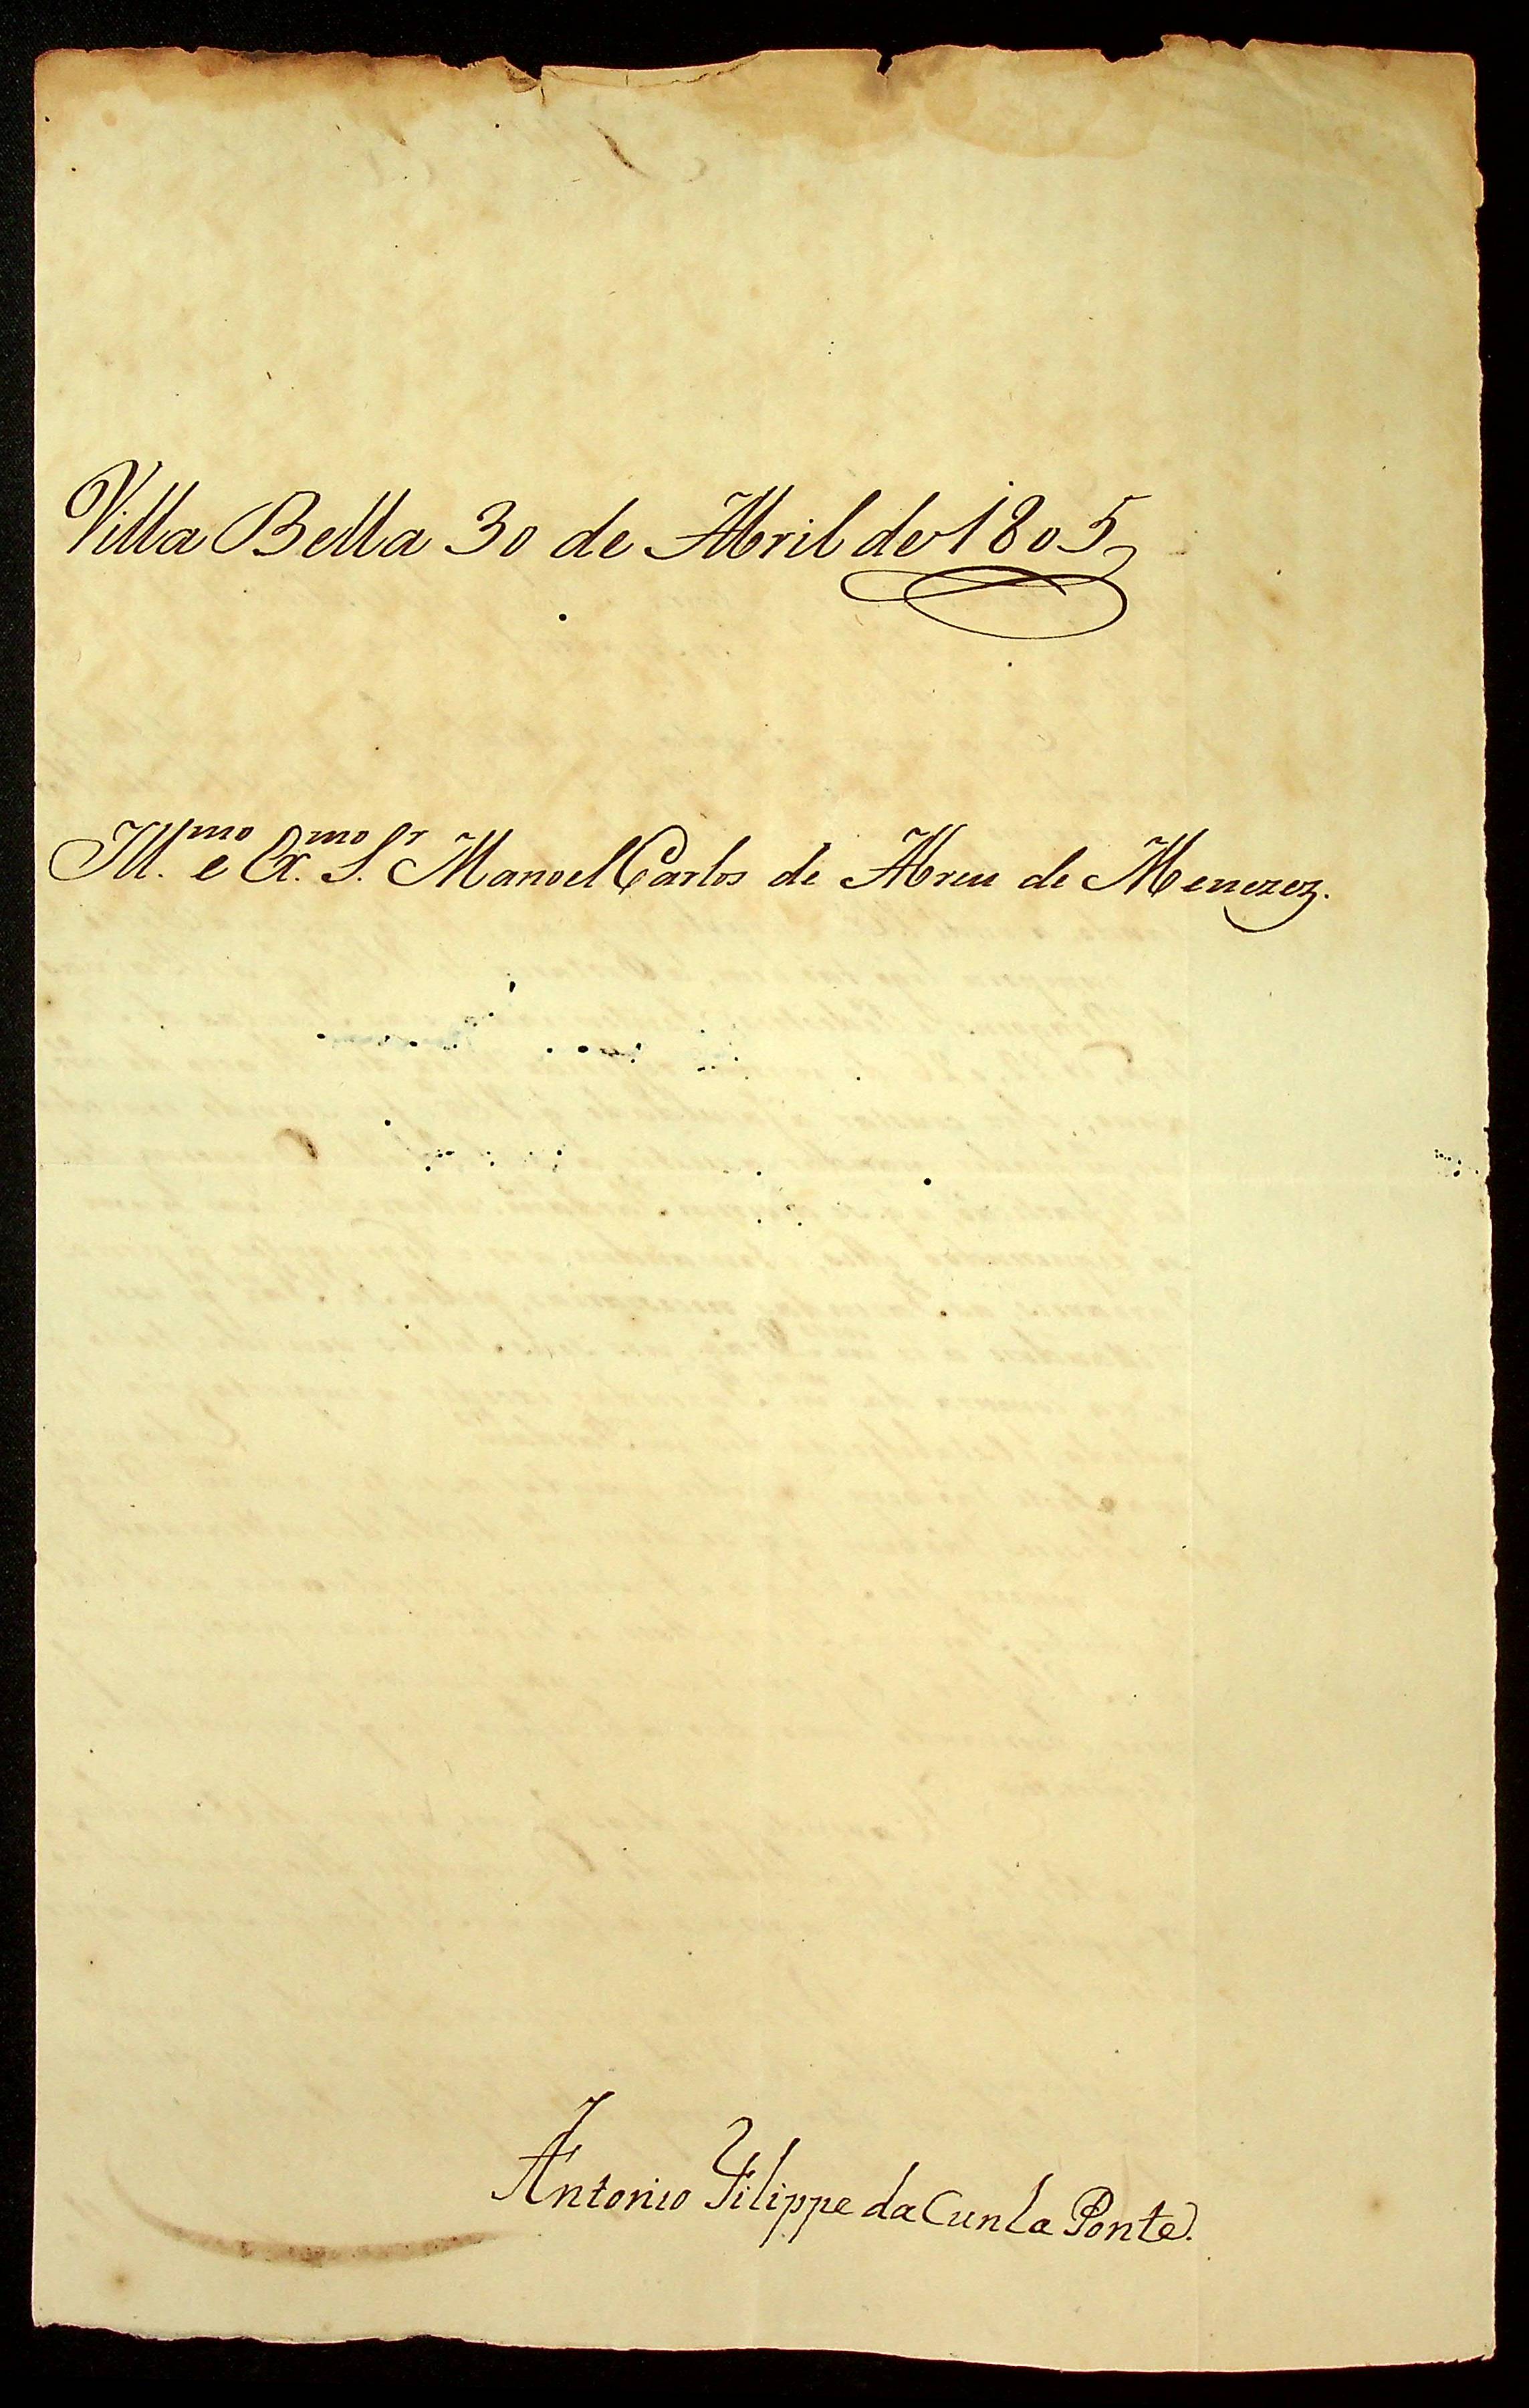 Villa Bella 30 de Abril de 1805
Ill.mo e Ex.mo S.r Manoel Carlos de Abreu de Menezez.
Antonio Filippe da Cunha Ponte.